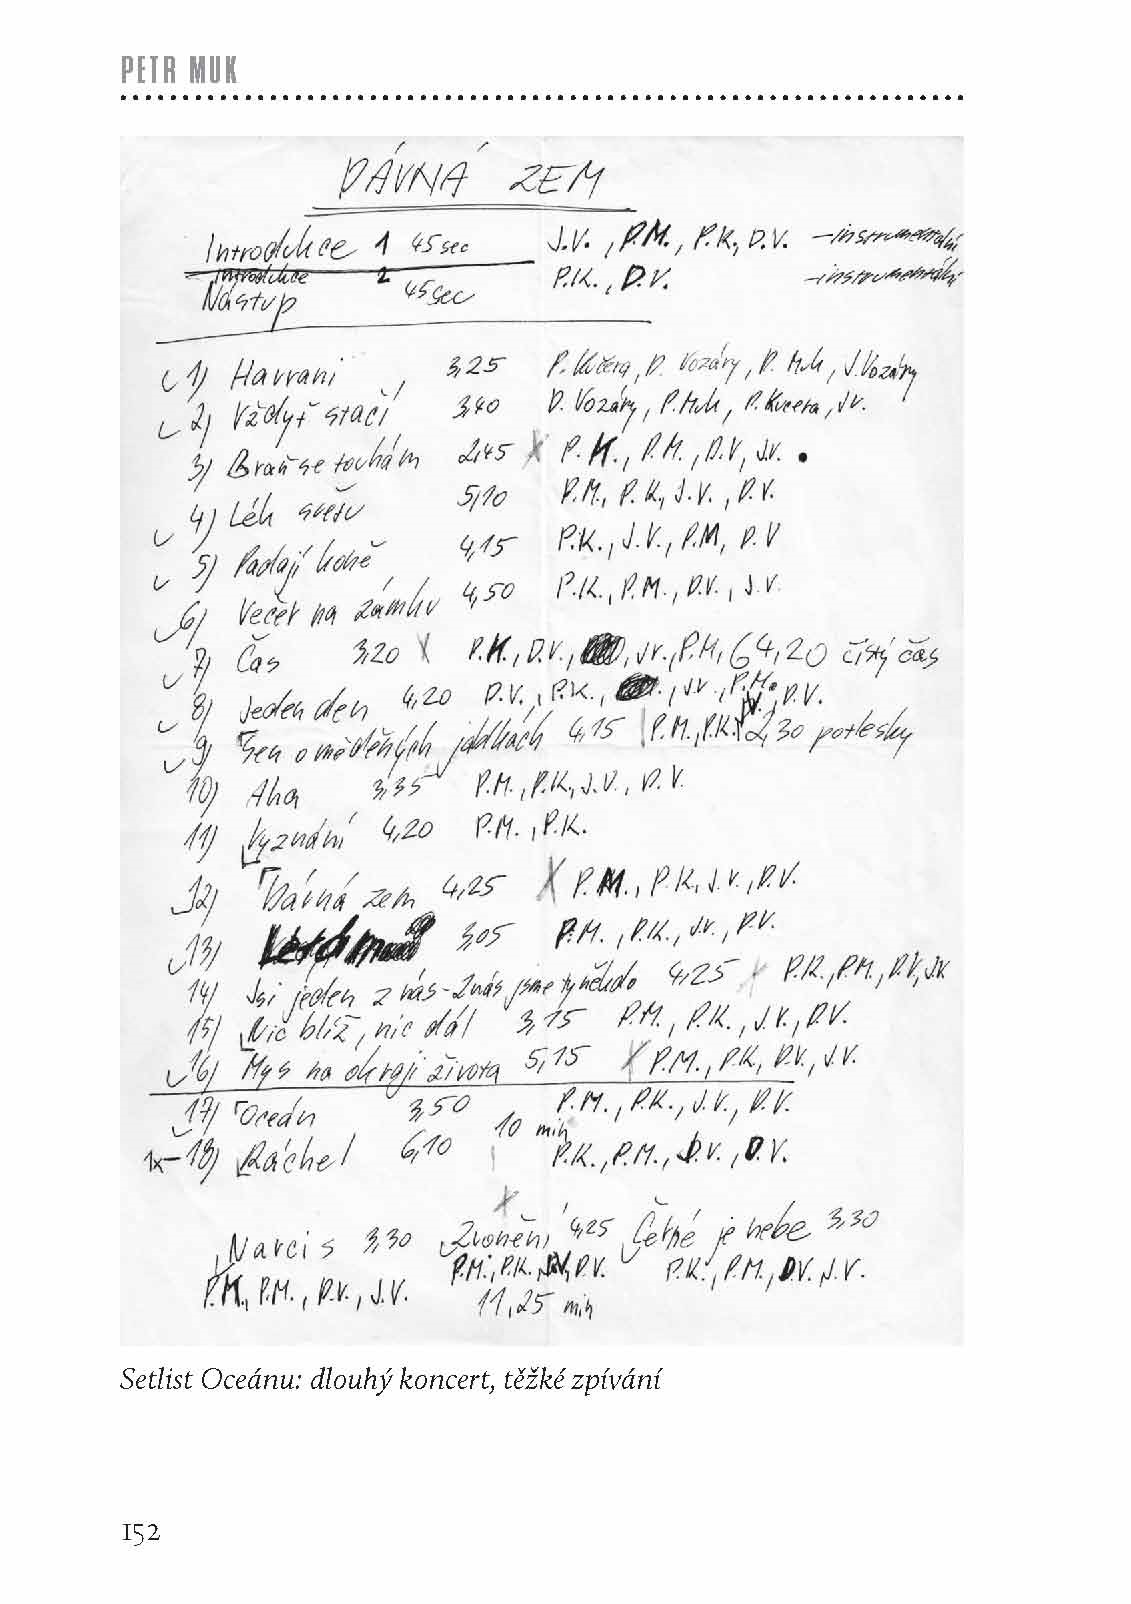 PETR MUK
DÁVNÁ ZEM
Introdukce 1 45 sec J.V., P.M., P.K., D.V. – instrumentální
Introdukce 2 P.K., D.V. – instrumentální
Nástup 45 sec
1) Havrani 3,25 P. Kučera, D. Vozáry, P. Muk, J. Vozáry
2) Vždyť stačí 3,40 D. Vozáry, P. Muk, P. Kučera, J.V.
3) Braň se touhám 2,45 x P.K., P.M., D.V., J.V.
4) Lék světu 5,10 P.M., P.K., J.V., D.V.
5) Padají koně 4,15 P.K., J.V., P.M., D.V
6) Večer na zámku 4,50 P.K., P.M., D.V., J.V.
7) Čas 3,20 x P.K., D.V., J.V., P.M. 64,20 čistý čas
8) Jeden den 4,20 D.V., P.K., J.V., P.M.
9) Sen o měděných jablkách 4,15 P.M., P.K., J.V., D.V. 2,30 potlesky
10) Aha 3,35 P.M., P.K., J.V., D.V.
11) Vyznání 4,20 P.M., P.K.
12) Dávná zem 4,25 x P.M., P.K., J.V., D.V.
13) 3,05 P.M., P.K., J.V., D.V.
14) Jsi jeden z nás - 2,45 4,25 x P.K., P.M., D.V., J.V.
15) Nic blíž, nic dál 3,15 P.M., P.K., J.V., D.V.
16) Mys na okraji života 5,15 x P.M., P.K., D.V., J.V.
17) Oceán 3,50 P.M., P.K., J.V., D.V.
10 min
1x – 18) Ráchel 6,10 P.K., P.M., J.V., D.V.
x
Narcis 3,30 Zvonění 4,25 Černé je nebe 3,30
P.K., P.M., D.V., J.V. P.M., P.K., J.V., D.V. P.K., P.M., D.V. J.V.
11,25 min
Setlist Oceánu: dlouhý koncert, těžké zpívání
152